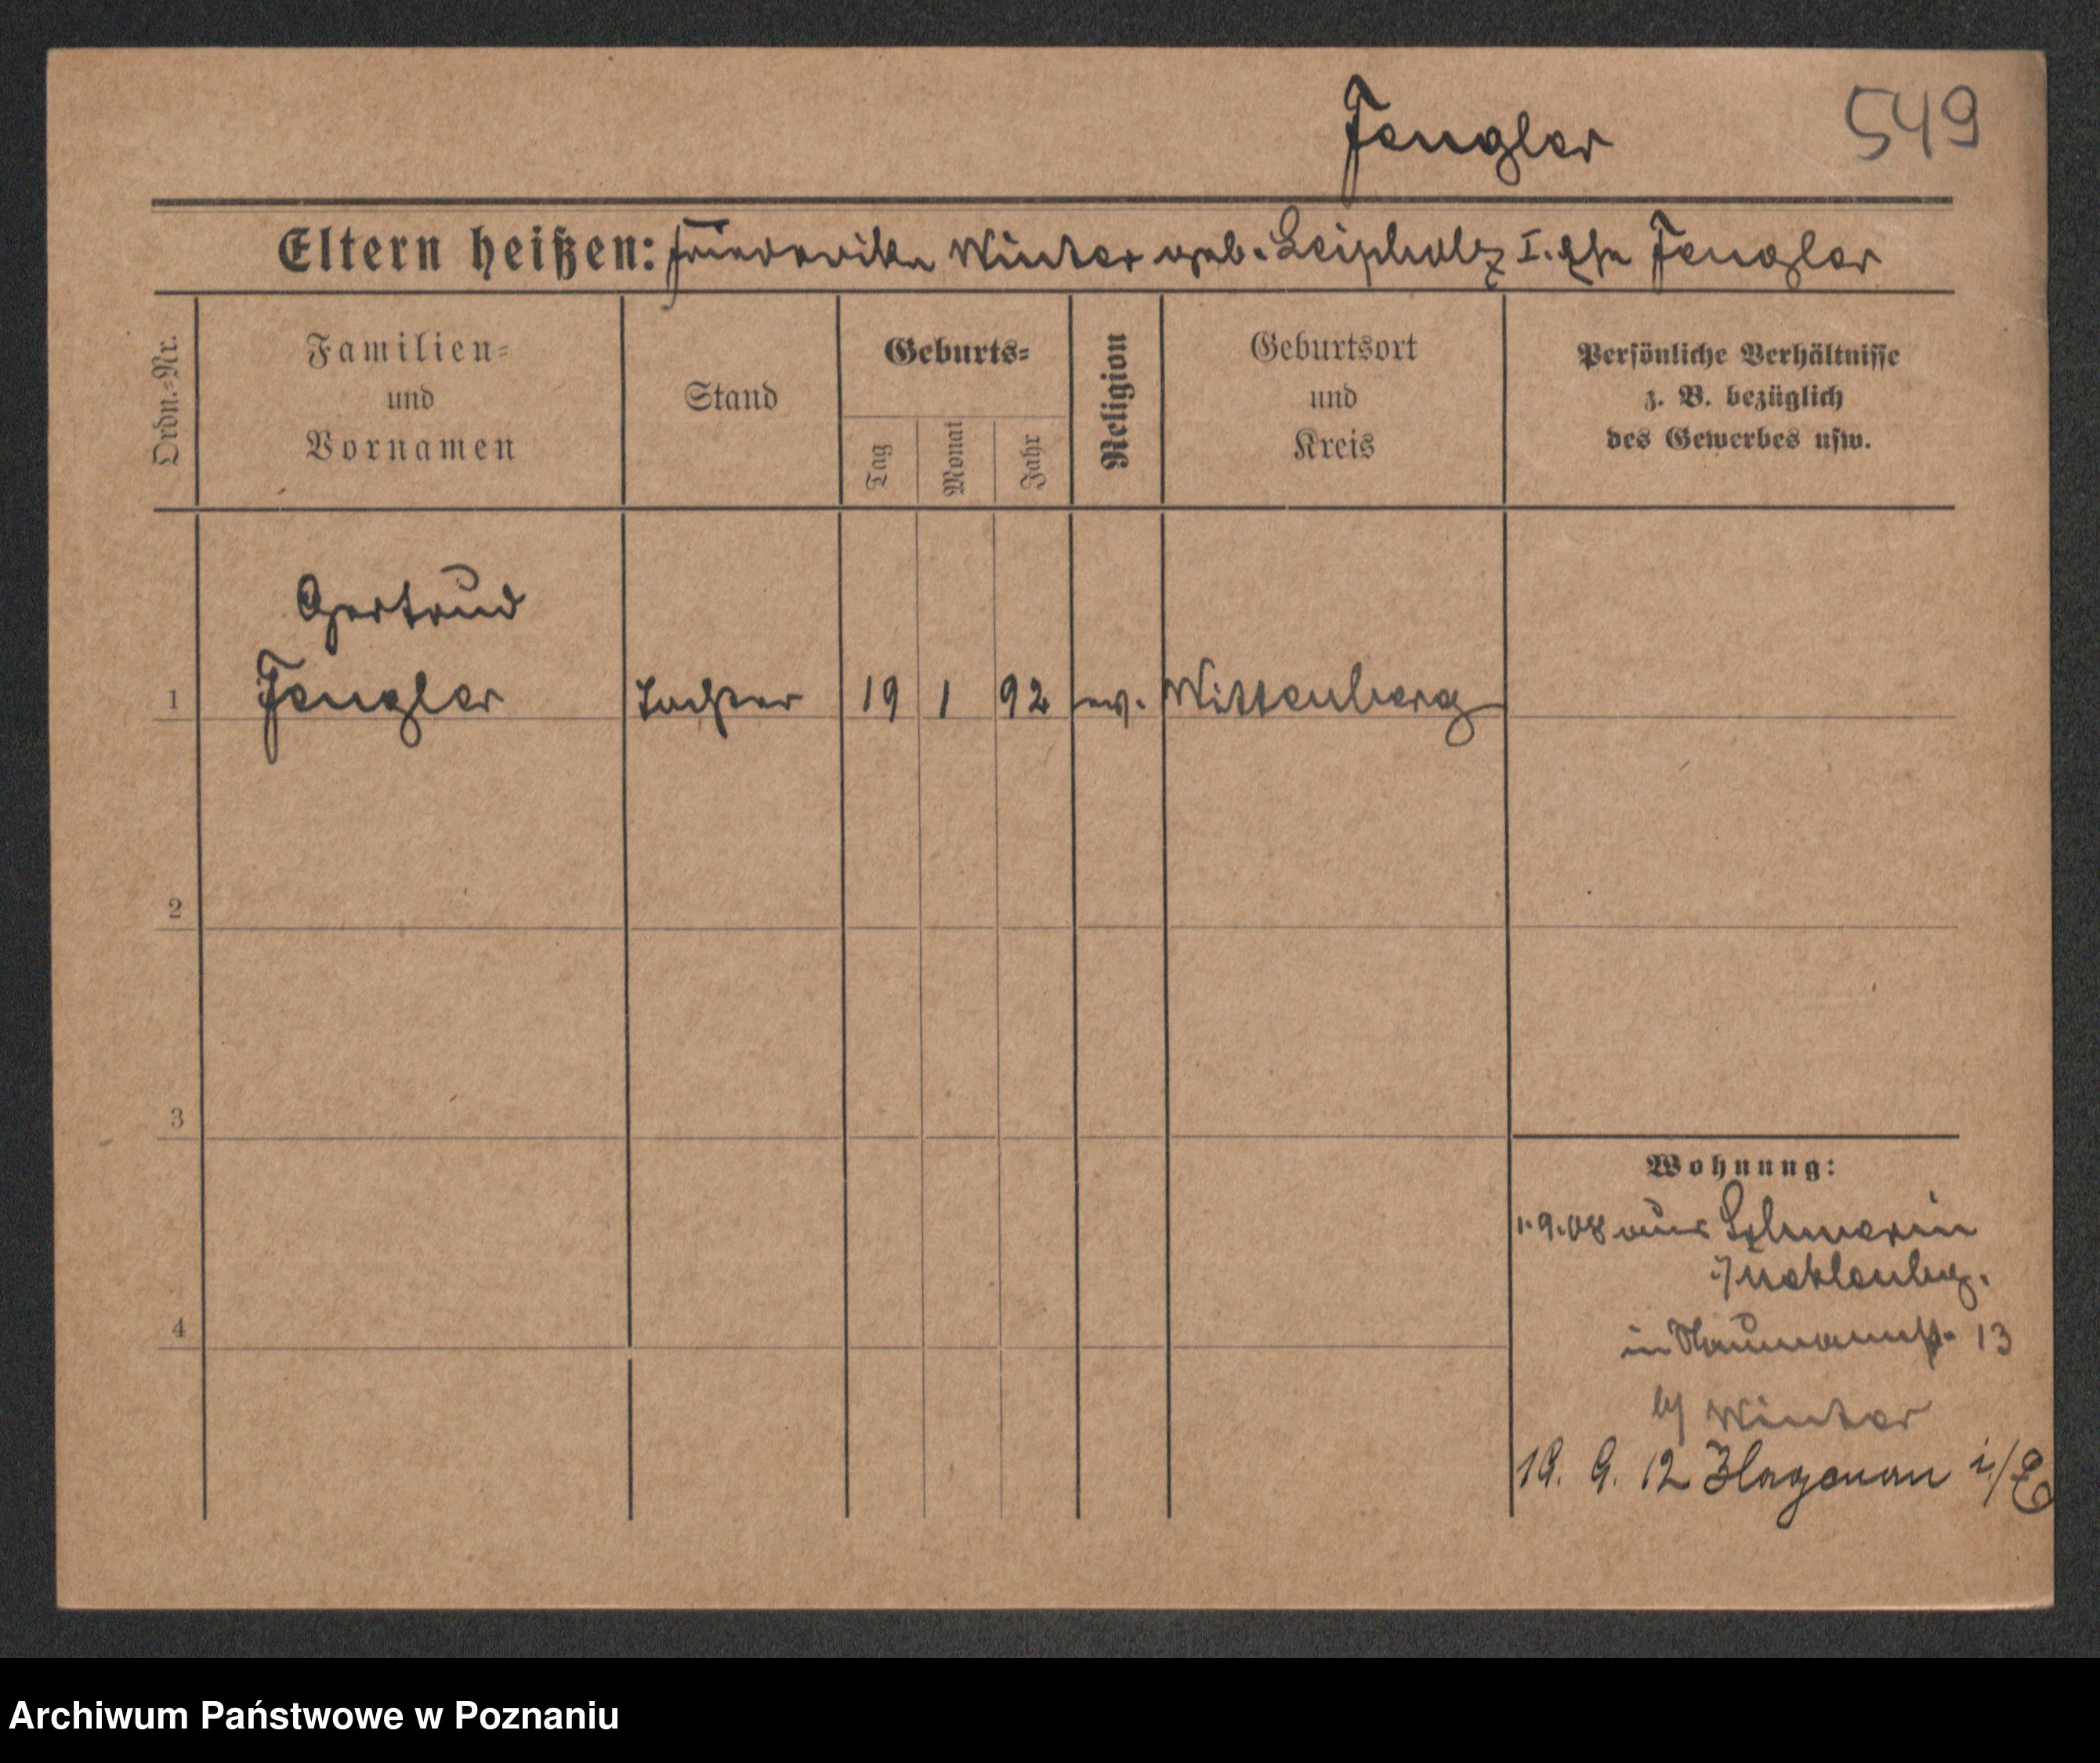 Fengler 549
Eltern heißen: Friederike Winter geb. Leipholz I. Ehe Fengler
Ordn.-Nr.
Familien-
und
Vornamen
Stand
Geburts-
Tag
Monat
Jahr
Religion
Geburtsort
und
Kreis
Persönliche Verhältnisse
z. B. bezüglich
des Gewerbes usw.
Gertrud
1 Fengler Tochter 19 1 92 ev. Wittenberg
2
3
Wohnung:
1.9.08 aus Schwerin
i/Meklenbg.
4
in Naumannstr. 13
b/ Winter
19. 9. 12 Hagenau i/E
Archiwum Państwowe w Poznaniu